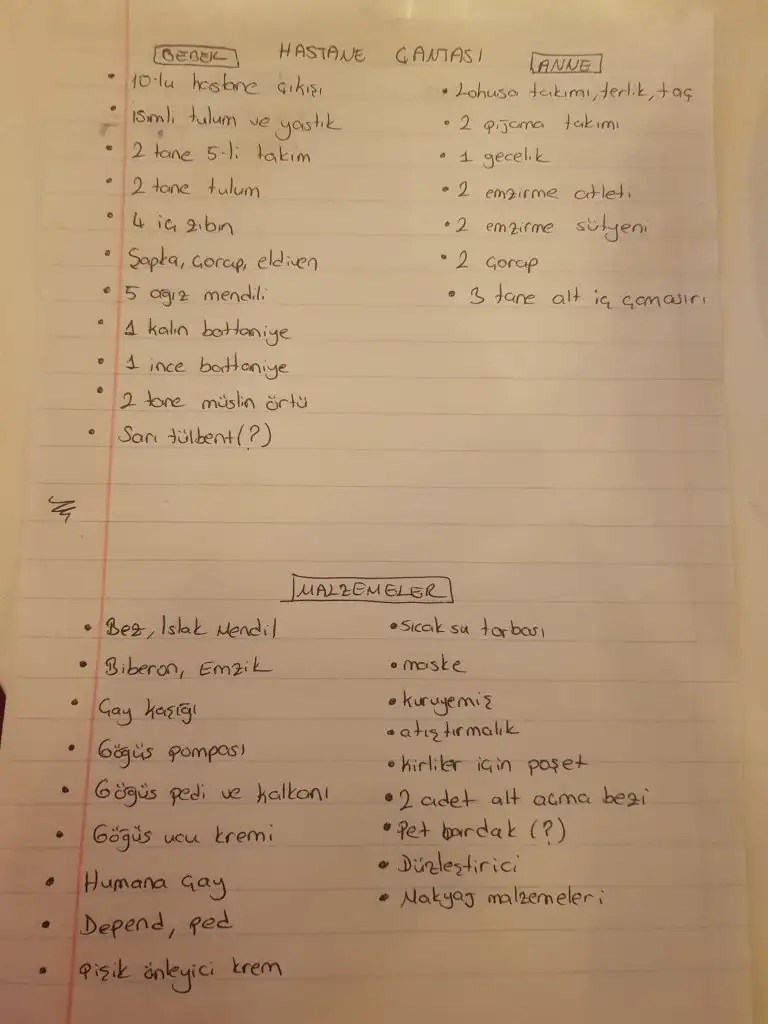 HASTANE ÇANTASI
BEBEK
• 10'lu hastane çıkışı
• isimli tulum ve yastık
• 2 tane 5'li takım
• 2 tane tulum
• 4 iç zıbın
• Şapka, çorap, eldiven
• 5 ağız mendili
• 1 kalın battaniye
• 1 ince battaniye
• 2 tane müslin örtü
• Sarı tülbent(?)
ANNE
• Lohusa takımı, terlik, taç
• 2 pijama takımı
• 1 gecelik
• 2 emzirme atleti
• 2 emzirme sütyeni
• 2 çorap
• 3 tane alt iç çamaşırı
MALZEMELER
• Bez, Islak Mendil
• Biberon, Emzik
• Çay kaşığı
• Göğüs pompası
• Göğüs pedi ve kalkanı
• Göğüs ucu kremi
• Humana Çay
• Depend, ped
• pişik önleyici krem
• sıcak su torbası
• maske
• kuruyemiş
• atıştırmalık
• kirliler için poşet
• 2 adet alt açma bezi
• Pet bardak (?)
• Düzleştirici
• Makyaj malzemeleri